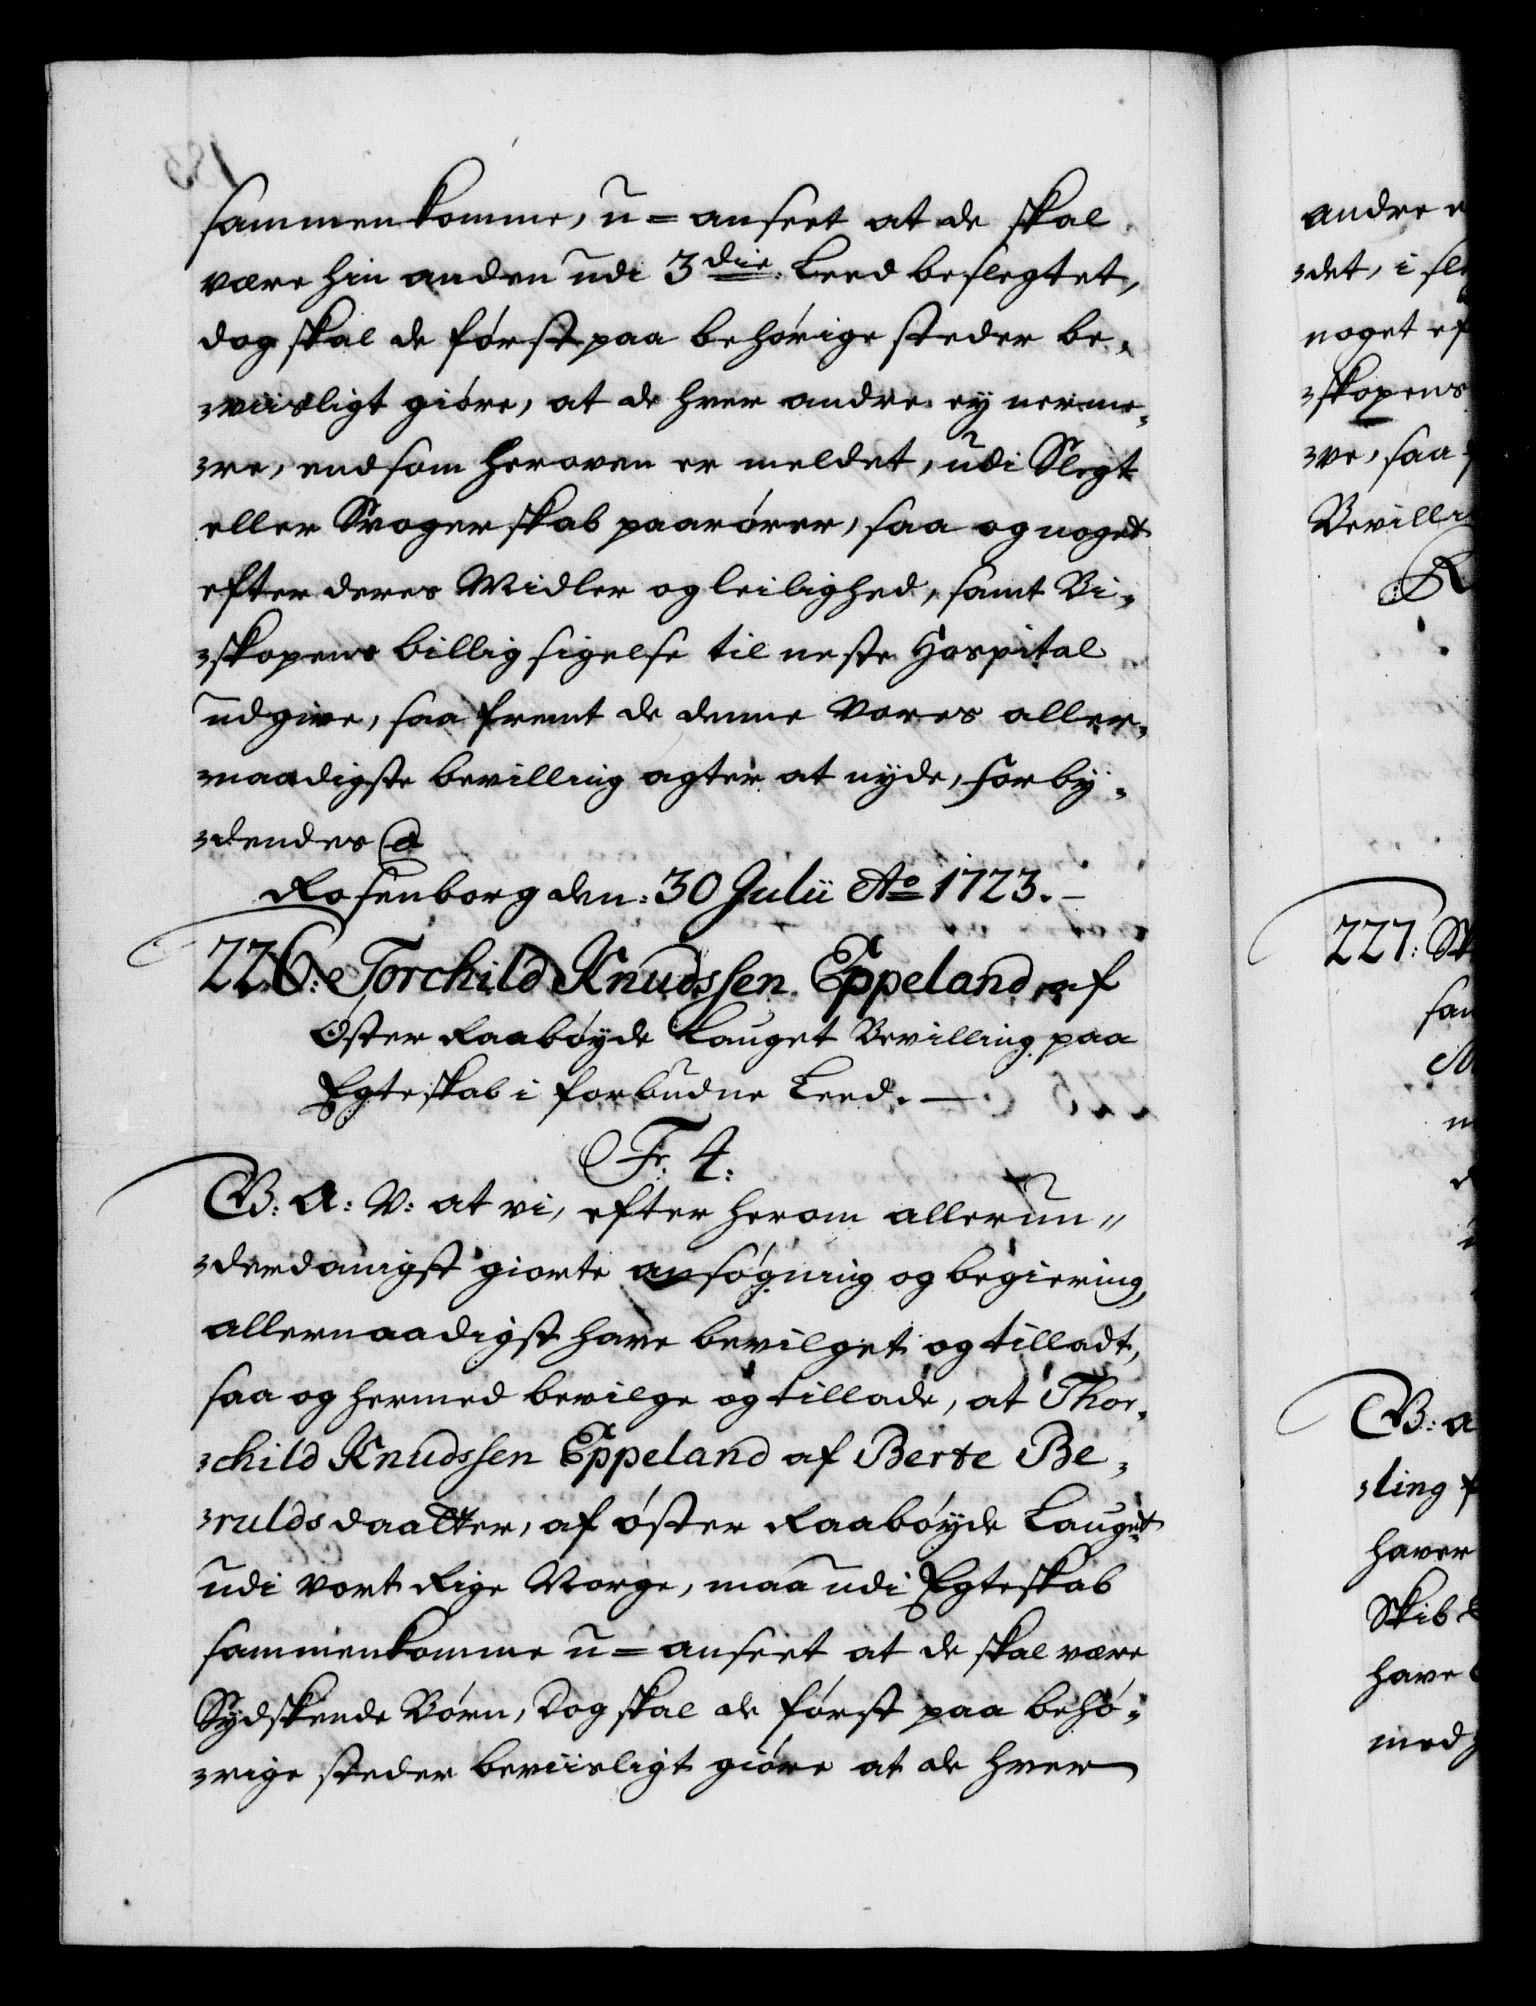 sammenkomme, u=anseet at de skal
være hin anden udi 3die Leed beslegtet,
dog skal de først paa behørige steder be-
-viisligt giøre, at de hver andre ey nerme-
-re, end som heroven er meldet, udi Slegt
eller Svogerskab paarører, saa og noget
efter deres Midler og leilighed, samt Bi-
-skopens billig sigelse til neste Hospital
udgive, saa fremt de denne Vores aller-
-naadigste bevilling agter at nyde, forby-
-dendes
Rosenborg den: 30 Julii Ao 1723.-
226: Torchild Knudssen Eppeland af
Øster Raabøyde Lauget Bevilling paa
Egteskab i forbudne Leed. -
Fr: 4:
G: A: V: at vi, efter herom allerun-
-derdanigst giorte ansøgning og begiering,
allernaadigst have bevilget og tilladt,
saa og hermed bevilge og tillade, at Thor-
-child Knudssen Eppeland af Berte Be-
-rulds daatter, af øster Raabøyde Lauget
udi vort Rige Norge, maa udi Egteskab
sammenkomme u=anseet at de skal være
Sydskende Børn, Dog skal de først paa behø-
-rige steder beviisligt giøre at de hver
andre
-det, i
noget
-skopens
-ve, saa
Bevilli
227:
G: A
-ling
haver
Skib
have
med